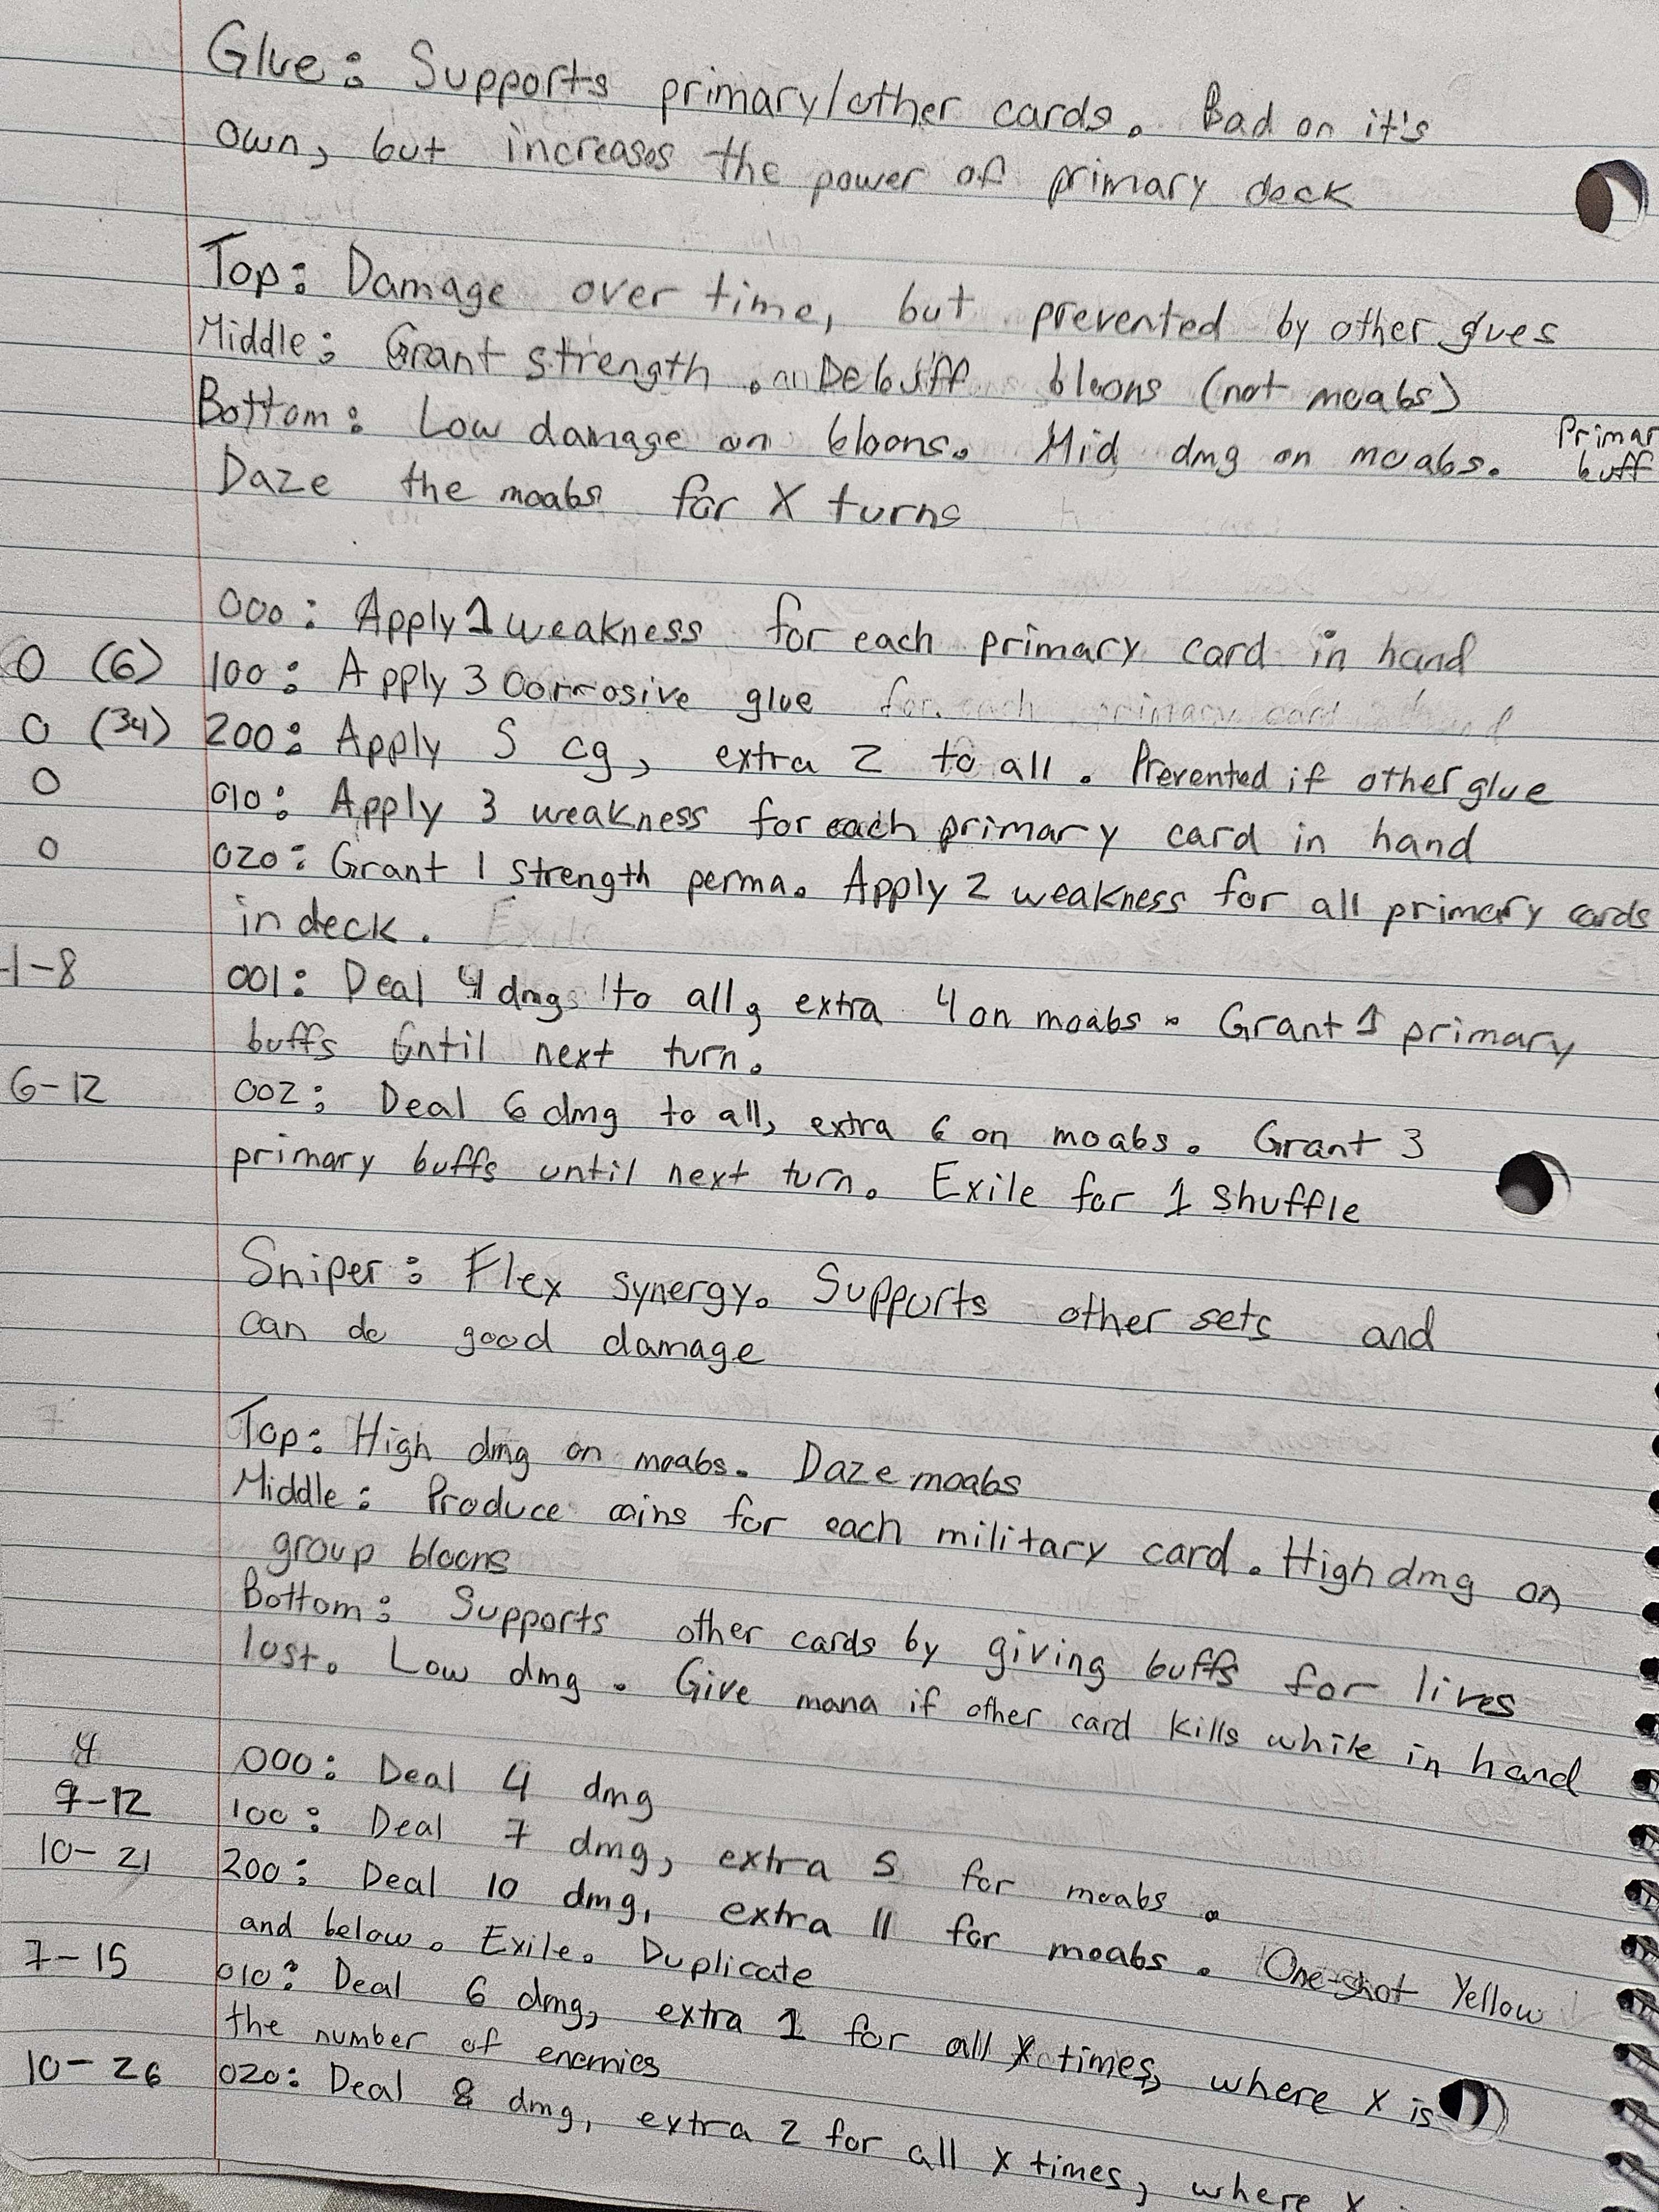 Glue: Supports primary/other cards. Bad on it's
own, but increases the power of primary deck
Top: Damage over time, but prevented by other glues
Middle: Grant strength. Debuff bloons (not moabs)
Bottom: Low damage on bloons. Mid dmg on moabs. Primar buff
Daze the moabs for X turns
000: Apply 1 weakness for each primary card in hand
0 (6) 100: Apply 3 Corrosive glue for each primary card
0 (34) 200: Apply 5 cg, extra 2 to all. Prevented if other glue
0 010: Apply 3 weakness for each primary card in hand
0 020: Grant 1 strength perma. Apply 2 weakness for all primary cards
in deck. Exile
-8 001: Deal 4 dmg to all, extra 4 on moabs. Grant 1 primary
buffs until next turn.
6-12 002: Deal 6 dmg to all, extra 6 on moabs. Grant 3
primary buffs until next turn. Exile for 1 shuffle
Sniper: Flex synergy. Supports other sets and
can do good damage
Top: High dmg on moabs. Daze moabs
Middle: Produce coins for each military card. High dmg on
group bloons
Bottom: Supports other cards by giving buffs for lives
lost. Low dmg. Give mana if other card kills while in hand
4 000: Deal 4 dmg
7-12 100: Deal 7 dmg, extra 5 for moabs.
10-21 200: Deal 10 dmg, extra 11 for moabs. One-shot Yellow
and below. Exile. Duplicate
7-15 010: Deal 6 dmg, extra 1 for all x times, where x is
the number of enemies
10-26 020: Deal 8 dmg, extra 2 for all x times, where x